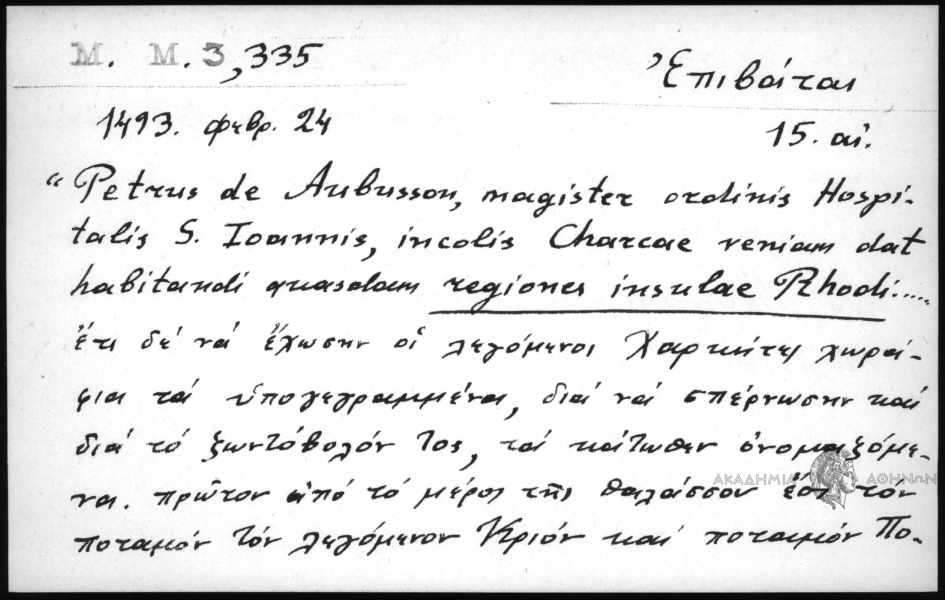 Μ. Μ. 3, 335
Ἐπιβάται
1493. φεβρ. 24
15. αἰ.
“Petrus de Aubusson, magister ordinis Hospi-
talis S. Ioannis, incolis Charcae veniam dat
habitandi quasdam regiones insulae Rhodi.....
ἔτι δέ νά ἔχωσην οἱ λεγόμενοι Χαρκίτες χωρά-
φια τά ὑπογεγραμμένα, διά νά σπέρνωσην καί
διά τό ζωντόβολόν τος, τά κάτωθεν ὀνομαζόμε-
να. πρῶτον ἀπό τό μέρος τῆς θαλάσσου ἕως τόν
ποταμόν τόν λεγόμενον Κριόν καί ποταμόν Πο-
ΑΚΑΔΗΜΙΑ ΑΘΗΝΩΝ